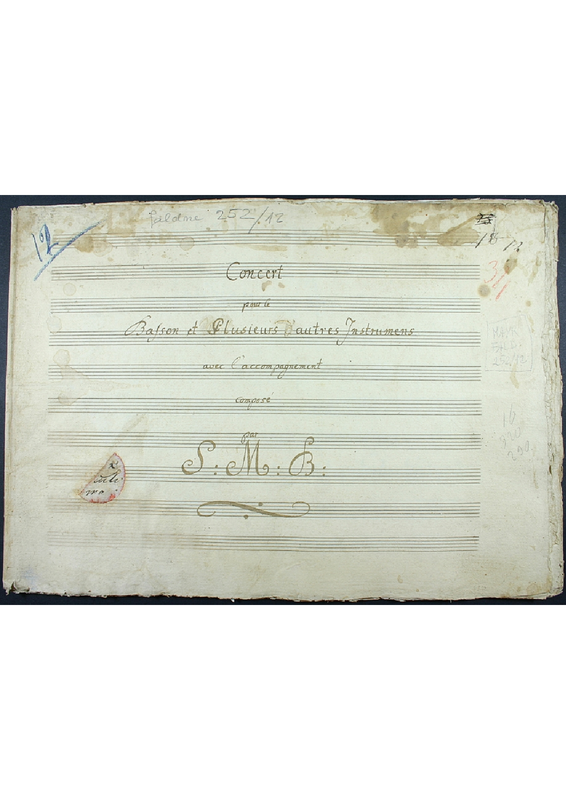 12
252/12
18
Concert
pour le
Basson et Plusieurs d'autres Instrumens
avec l'accompagnement
composé
par
S: M: B:
16
290